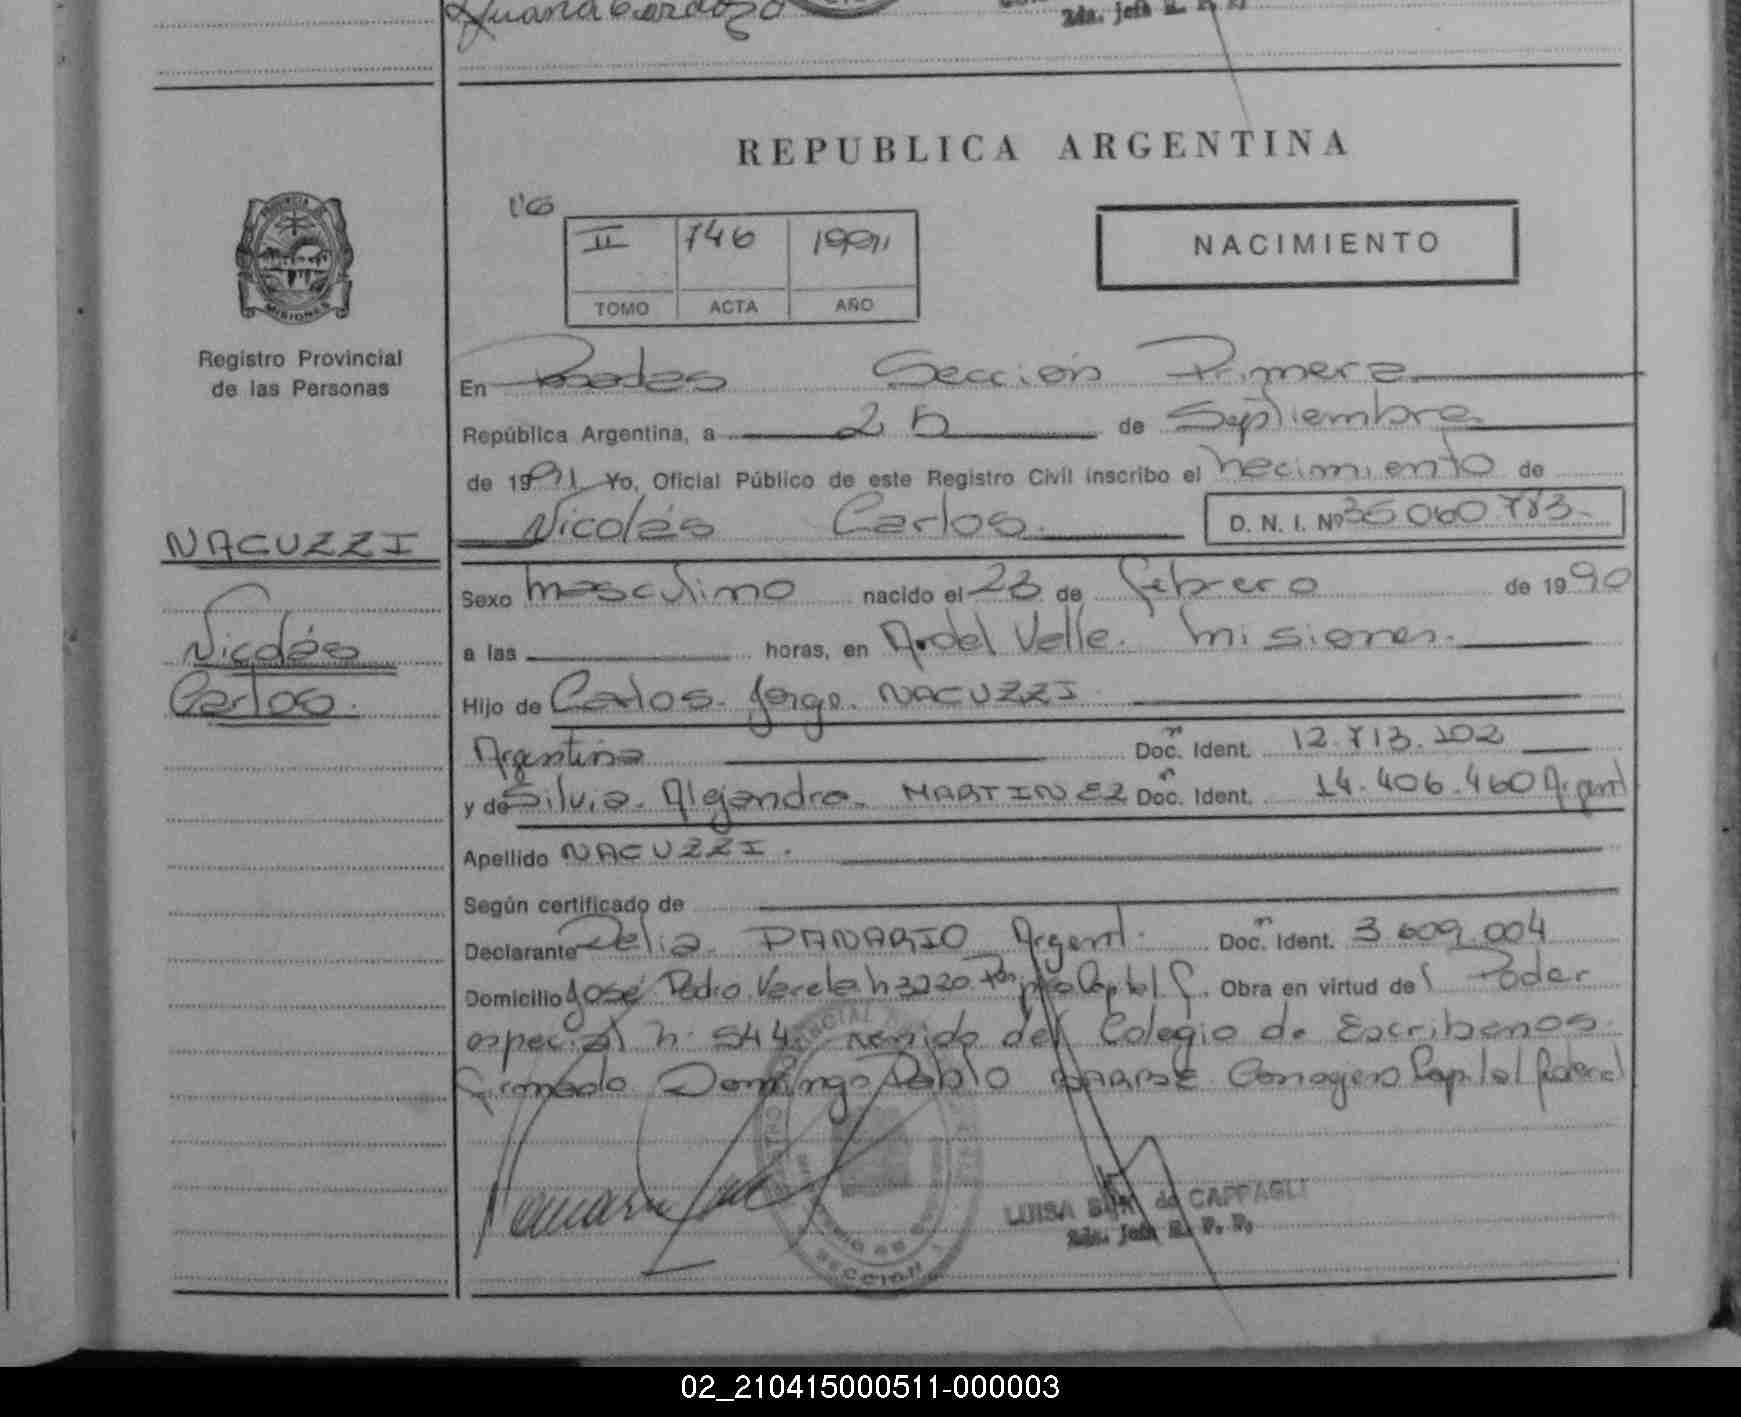 Juana Cardozo
2da. Jefa R. P. P.
REPUBLICA ARGENTINA
II 746 1991
TOMO ACTA AÑO
NACIMIENTO
PROVINCIA DE
MISIONES
Registro Provincial
de las Personas
En Posadas Sección Primera
República Argentina, a 25 de Septiembre
de 1991 Yo, Oficial Público de este Registro Civil inscribo el nacimiento de
Nicolás Carlos. D. N. I. Nº 35060783-
NACUZZI
Nicolás
Carlos.
Sexo masculino nacido el 23 de febrero de 1990
a las horas, en Aº del Valle. Misiones.
Hijo de Carlos Jorge NACUZZI
Argentina Doc. Ident. 12.713.102
y de Silvia Alejandra MARTINEZ Doc. Ident. 14.406.460 Argent
Apellido NACUZZI.
Según certificado de
Declarante Delia PANARIO Argent. Doc. Ident. 3.609.004
Domicilio José Pedro Varela n 3220 Capital F. Obra en virtud del Poder
especial n. 544 venido del Colegio de Escribanos.
firmado Domingo Pablo Capital federal
SECCION
LUISA de CAPPAGLI
2da. Jefa R. P. P.
02_210415000511-000003